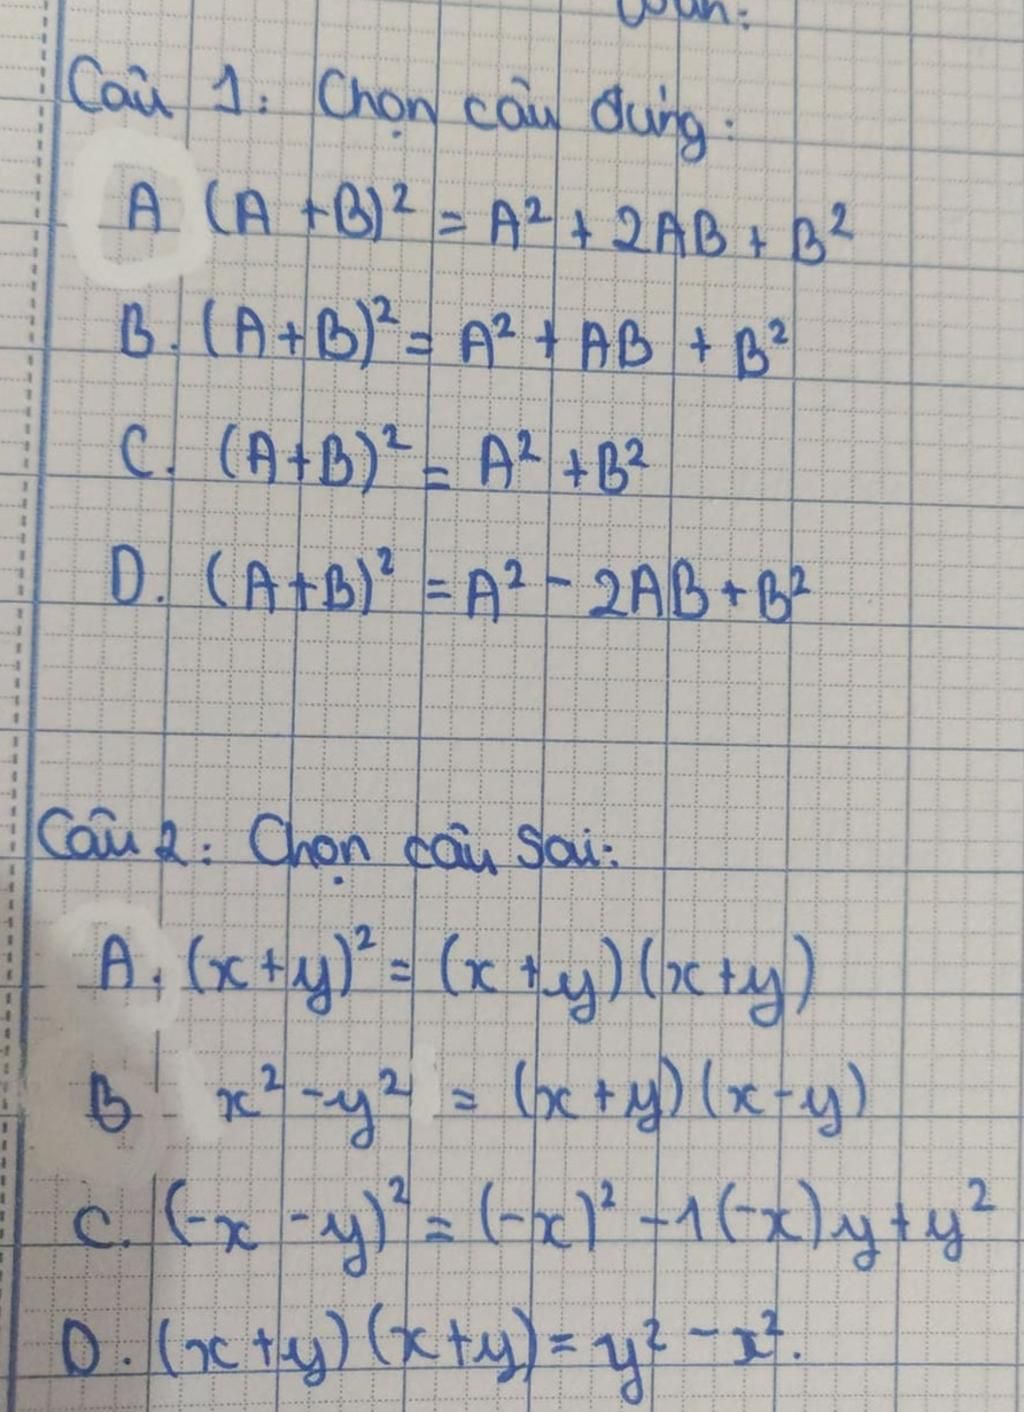 Câu 1: Chọn câu đúng:
A (A + B)² = A² + 2AB + B²
B. (A + B)² = A² + AB + B²
C. (A + B)² = A² + B²
D. (A + B)² = A² - 2AB + B²
Câu 2: Chọn câu sai:
A. (x + y)² = (x + y)(x + y)
B x² - y² = (x + y)(x - y)
C. (-x - y)² = (-x)² - 1(-x)y + y²
D. (x + y)(x + y) = y² - x².